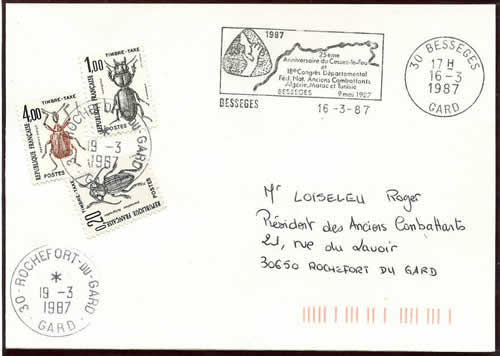 1987
25ème
Anniversaire du Cessez-le-Feu
et
18e Congrès Départemental
Féd. Nat. Anciens Combattants
Algérie, Maroc et Tunisie
BESSEGES 9 mai 1987
BESSEGES 16-3-87
30 BESSEGES
17 H
16-3
1987
GARD
TIMBRE-TAXE
1,00
REPUBLIQUE FRANÇAISE
POSTES
TIMBRE-TAXE
4,00
REPUBLIQUE FRANÇAISE
POSTES
TIMBRE-TAXE
0,20
REPUBLIQUE FRANÇAISE
POSTES
30-ROCHEFORT-DU-GARD
19-3
1987
Mr LOISELEU Roger
Président des Anciens Combattants
21, rue du Lavoir
30650 ROCHEFORT DU GARD
30-ROCHEFORT-DU-GARD-
*
19-3
1987
GARD